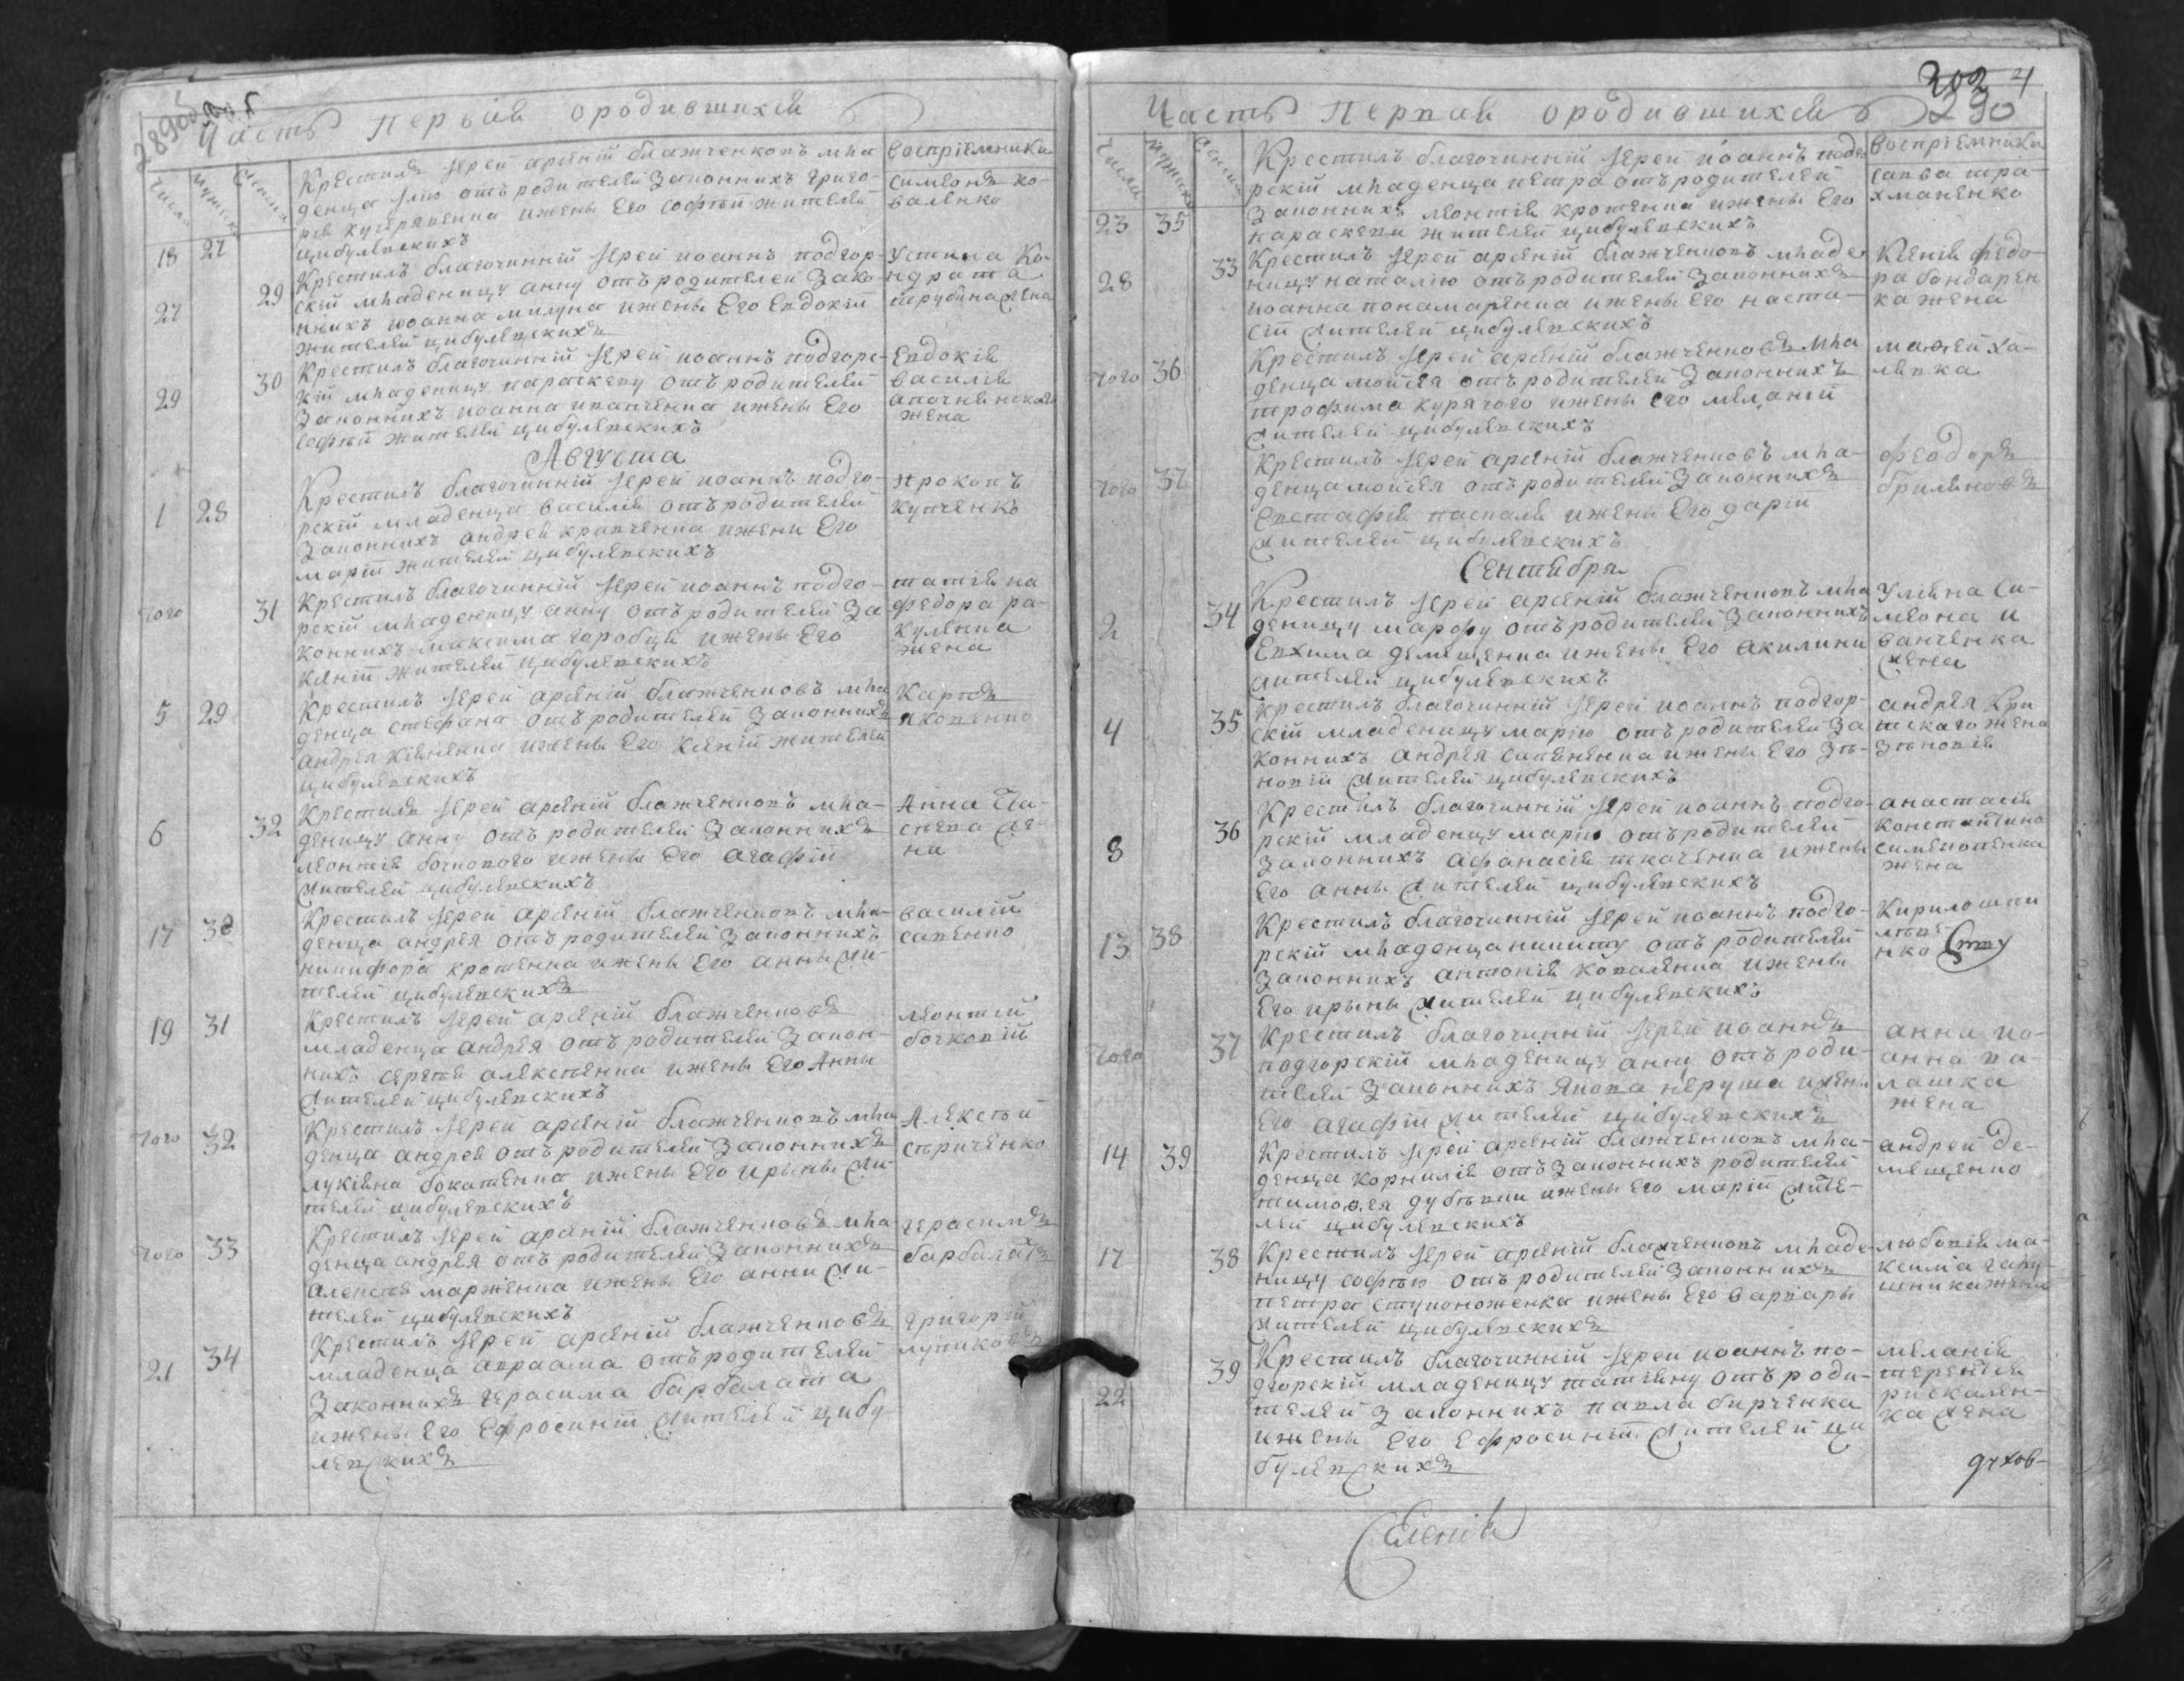 Часть первая ородившихся
числа мужеска женска
Крестилъ іерей арсеній блажченковъ мла
денца илю отъ родителей законнихъ григо-
рія кучерявенка ижены Его софіи жителей
цибулевскихъ
воспріемники
симеонъ ко-
валенко
18 27
Крестилъ благочинній іерей иоаннъ подгор-
скій младеницу анну отъ родителей зако
ннихъ иоанна ижены Его Евдокіи
жителей цибулевскихъ
27 29
Крестилъ благочинній іерей иоаннъ подгорс-
кій младеницу параскеву отъ родителей
законнихъ иоанна иванченка ижены Его
софіи жителей цибулевскихъ
29 30
Евдокія
василія
жена
Августа
Крестилъ благочинній іерей иоаннъ подго-
рскій младенца василія отъ родителей
законнихъ андрея кравченка ижени Его
маріи жителей цибулевскихъ
1 28
прокопъ
купченко
Крестилъ благочинній іерей иоаннъ подго-
рскій младеницу анну отъ родителей за
коннихъ максима горобця ижены Его
ксеніи жителей цибулевскихъ
того 31
татіяна
федора ра-
куленка
жена
Крестилъ іерей арсеній блажченковъ мла
денца стефана отъ родителей законнихъ
андрея ижены Его ксеніи жителей
цибулевскихъ
5 29
Карпъ
яковенко
Крестилъ іерей арсеній блажченковъ мла-
деницу анну отъ родителей законнихъ
леонтія бочкового ижены Его агафіи
жителей цибулевскихъ
6 32
Анна
же-
на
Крестилъ іерей арсеній блажченковъ мла-
денца андрея отъ родителей законнихъ
никифора кротенка ижены Его анны жи-
телей цибулевскихъ
17 30
василій
савенко
Крестилъ іерей арсеній блажченковъ
младенца андрея отъ родителей закон-
нихъ сергея алексеенка ижены Его Анны
жителей цибулевскихъ
19 31
леонтій
бочковій
Крестилъ іерей арсеній блажченковъ мла
денца андрея отъ родителей законнихъ
лукіяна ижены Его ирыны жи-
телей цибулевскихъ
того 32
Алексѣй
Крестилъ іерей арсеній блажченковъ мла-
денца андрея отъ родителей законнихъ
алексея марженка ижены Его анни жи-
телей цибулевскихъ
того 33
герасимъ
барбалатъ
Крестилъ іерей арсеній блажченковъ
младенца авраама отъ родителей
законнихъ герасима барбалата
ижены Его Ефросиніи жителей цибу
левскихъ
21 34
григорій
Часть первая ородившихся
290
числа мужеска женска
Крестилъ благочинній іерей иоаннъ подго
рскій младенца петра отъ родителей
законнихъ леонтія кротенка ижены Его
параскеви жителей цибулевскихъ
воспріемники
савва тра-
хманенко
23 35
Крестилъ іерей арсеній блажченковъ младе
ницу наталію отъ родителей законнихъ
иоанна понамаренка ижены Его наста-
сіи жителей цибулевскихъ
28 33
Ксенія федо-
ра бондарен
ка жена
Крестилъ іерей арсеній блажченковъ мла
денца мойсея отъ родителей законнихъ
трофима курячого ижены его меланіи
жителей цибулевскихъ
того 36
матѳей ха-
Крестилъ іерей арсеній блажченковъ мла-
денца мойсея отъ родителей законнихъ
Евстафія паскаля ижены Его даріи
жителей цибулевскихъ
того 37
феодоръ
Сентября
Крестилъ іерей арсеній блажченковъ мла
деницу марфу отъ родителей законнихъ
Евхима демещенка ижены Его акилини
жителей цибулевскихъ
2 34
Уляна си-
меона и
ванченка
жена
Крестилъ благочинній іерей иоаннъ подгор-
скій младеницу марію отъ родителей за
коннихъ андрея ижены Его зѣ-
новіи жителей цибулевскихъ
4 35
андрея кри
жена
зѣновія
Крестилъ благочинній іерей иоаннъ подго-
рскій младеницу марію отъ родителей
законнихъ афанасія ткаченка ижены
Его анны жителей цибулевскихъ
8 36
анастасія
константина
жена
Крестилъ благочинній іерей иоаннъ подго-
рскій младенца никиту отъ родителей
законнихъ антонія коваленка ижены
Его ирыны жителей цибулевскихъ
13 38
Крестилъ благочинній іерей иоаннъ
подгорскій младеницу анну отъ роди-
телей законнихъ якова неруша ижени
Его агафіи жителей цибулевскихъ
того 37
анна ио-
анна па-
лашка
жена
Крестилъ іерей арсеній блажченковъ мла-
денца корнилія отъ законнихъ родителей
тимоѳея ижены Его маріи жите-
лей цибулевскихъ
14 39
андрей де-
мещенко
Крестилъ іерей арсеній блажченковъ младе-
ницу софію отъ родителей законнихъ
петра ступоноженка ижены Его варвары
жителей цибулевскихъ
17 38
любовія ма-
ксима
жена
Крестилъ благочинній іерей иоаннъ по-
дгорскій младеницу татіяну отъ роди-
телей законнихъ павла бирченка
ижены Его Ефросиніи жителей ци
булевскихъ
22 39
меланія
терентія
жена